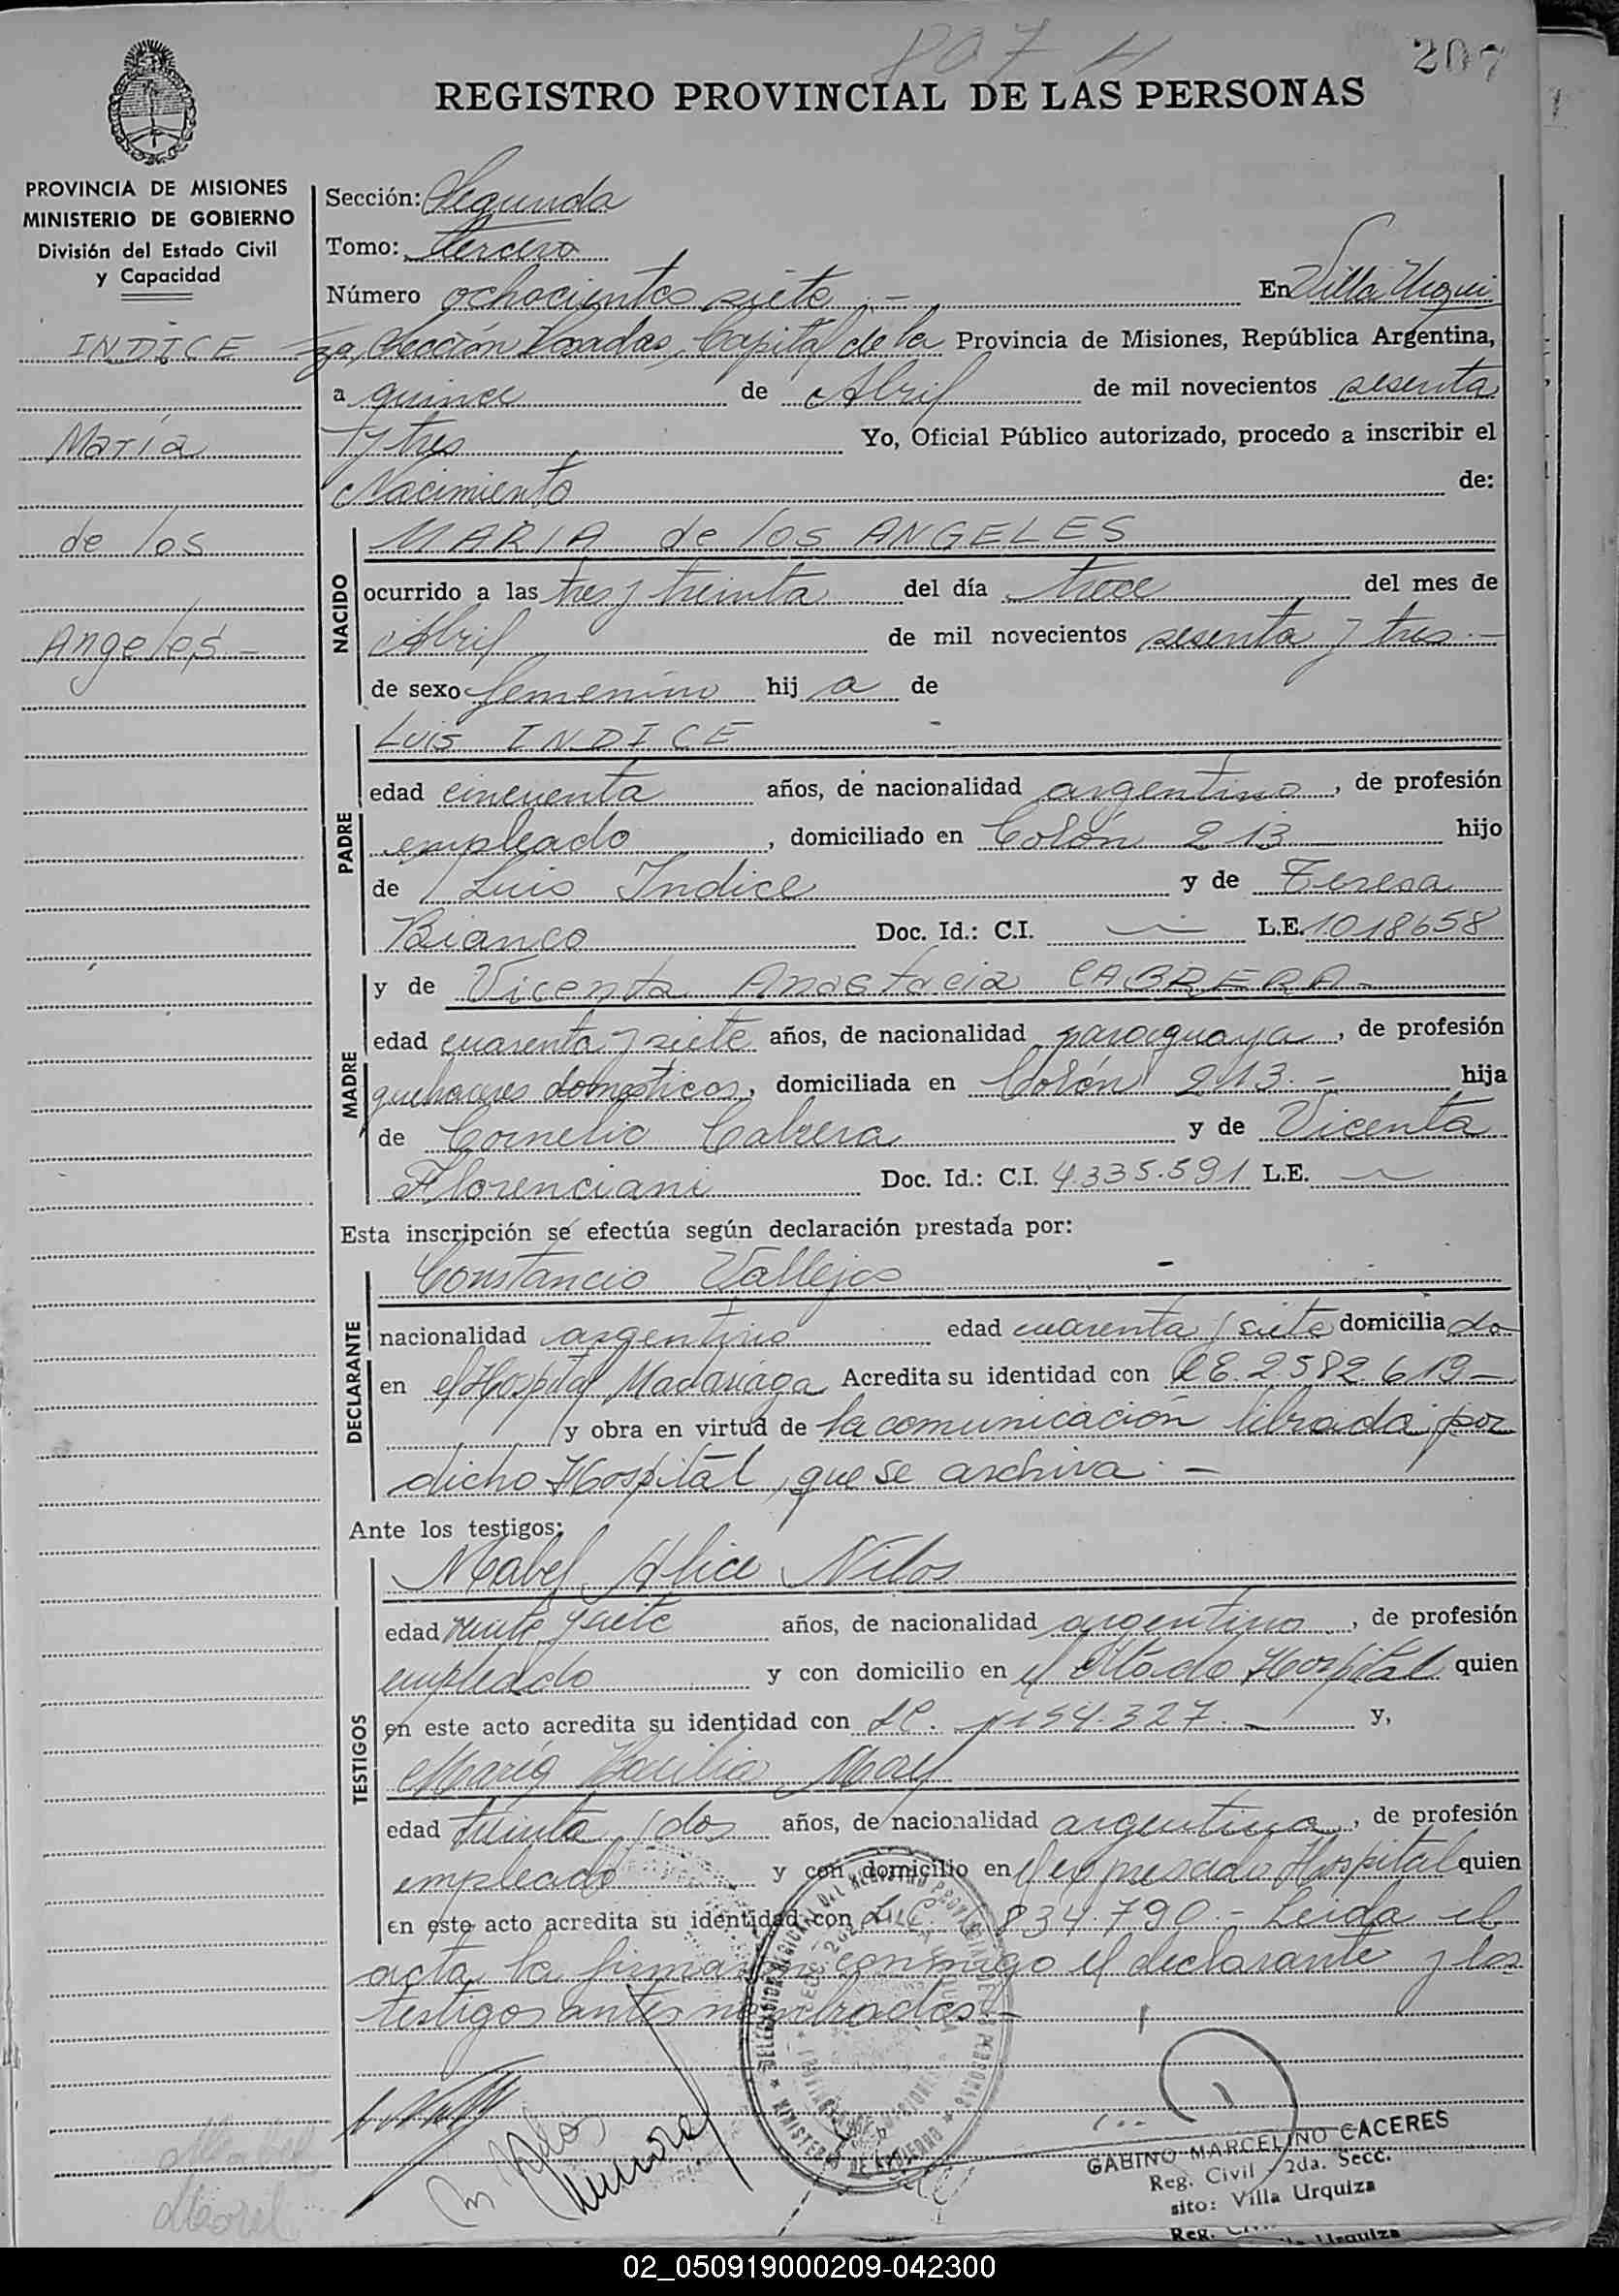 207
807
REGISTRO PROVINCIAL DE LAS PERSONAS
PROVINCIA DE MISIONES
MINISTERIO DE GOBIERNO
División del Estado Civil
y Capacidad
INDICE
María
de los
Angeles -
Sección: Segunda
Tomo: tercero
Número ochocientos siete.- En Villa Urqui
za, Sección Posadas, Capital de la Provincia de Misiones, República Argentina,
a quince de Abril de mil novecientos sesenta
y tres Yo, Oficial Público autorizado, procedo a inscribir el
Nacimiento de:
NACIDO
MARIA de los ANGELES
ocurrido a las tres y treinta del día trece del mes de
Abril de mil novecientos sesenta y tres.-
de sexo femenino hij a de
PADRE
Luis INDICE
edad cincuenta años, de nacionalidad argentino, de profesión
empleado, domiciliado en Colón 213 hijo
de Luis Indice y de Teresa
Bianco Doc. Id.: C.I. - L.E. 1018658
MADRE
y de Vicenta Anastacia CABRERA-
edad cuarenta y siete años, de nacionalidad paraguaya, de profesión
quehaceres domesticos, domiciliada en Colón 213.- hija
de Cornelio Cabrera y de Vicenta
Florenciani Doc. Id.: C.I. 4.335.591 L.E. -
Esta inscripción se efectúa según declaración prestada por:
DECLARANTE
Constancio Vallejos
nacionalidad argentino edad cuarenta y siete domicilia do
en el Hospital Madariaga Acredita su identidad con LE. 2.582.619-
y obra en virtud de la comunicación librada por
dicho Hospital, que se archiva.-
Ante los testigos:
TESTIGOS
Mabel Alice Nilos
edad veinte y siete años, de nacionalidad argentina, de profesión
empleado y con domicilio en el citado Hospital quien
en este acto acredita su identidad con LC. 154.327.- y,
María
edad treinta y dos años, de nacionalidad argentina, de profesión
empleado y con domicilio en el expresado Hospital quien
en este acto acredita su identidad con L.C. 834.790.- Leida el
acta la firman conmigo el declarante y los
testigos antes nombrados.-
GABINO MARCELINO CACERES
Reg. Civil 2da. Secc.
sito: Villa Urquiza
02_050919000209-042300